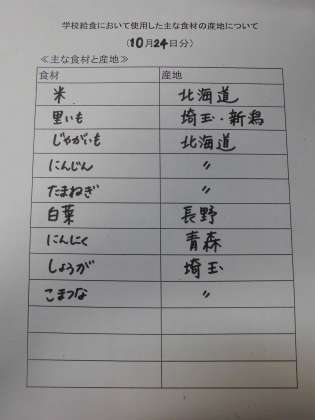 学校給食において使用した主な食材の産地について
(10月24日分)
≪主な食材と産地≫
食材 産地
米 北海道
里いも 埼玉・新潟
じゃがいも 北海道
にんじん 〃
たまねぎ 〃
白菜 長野
にんにく 青森
しょうが 埼玉
こまつな 〃